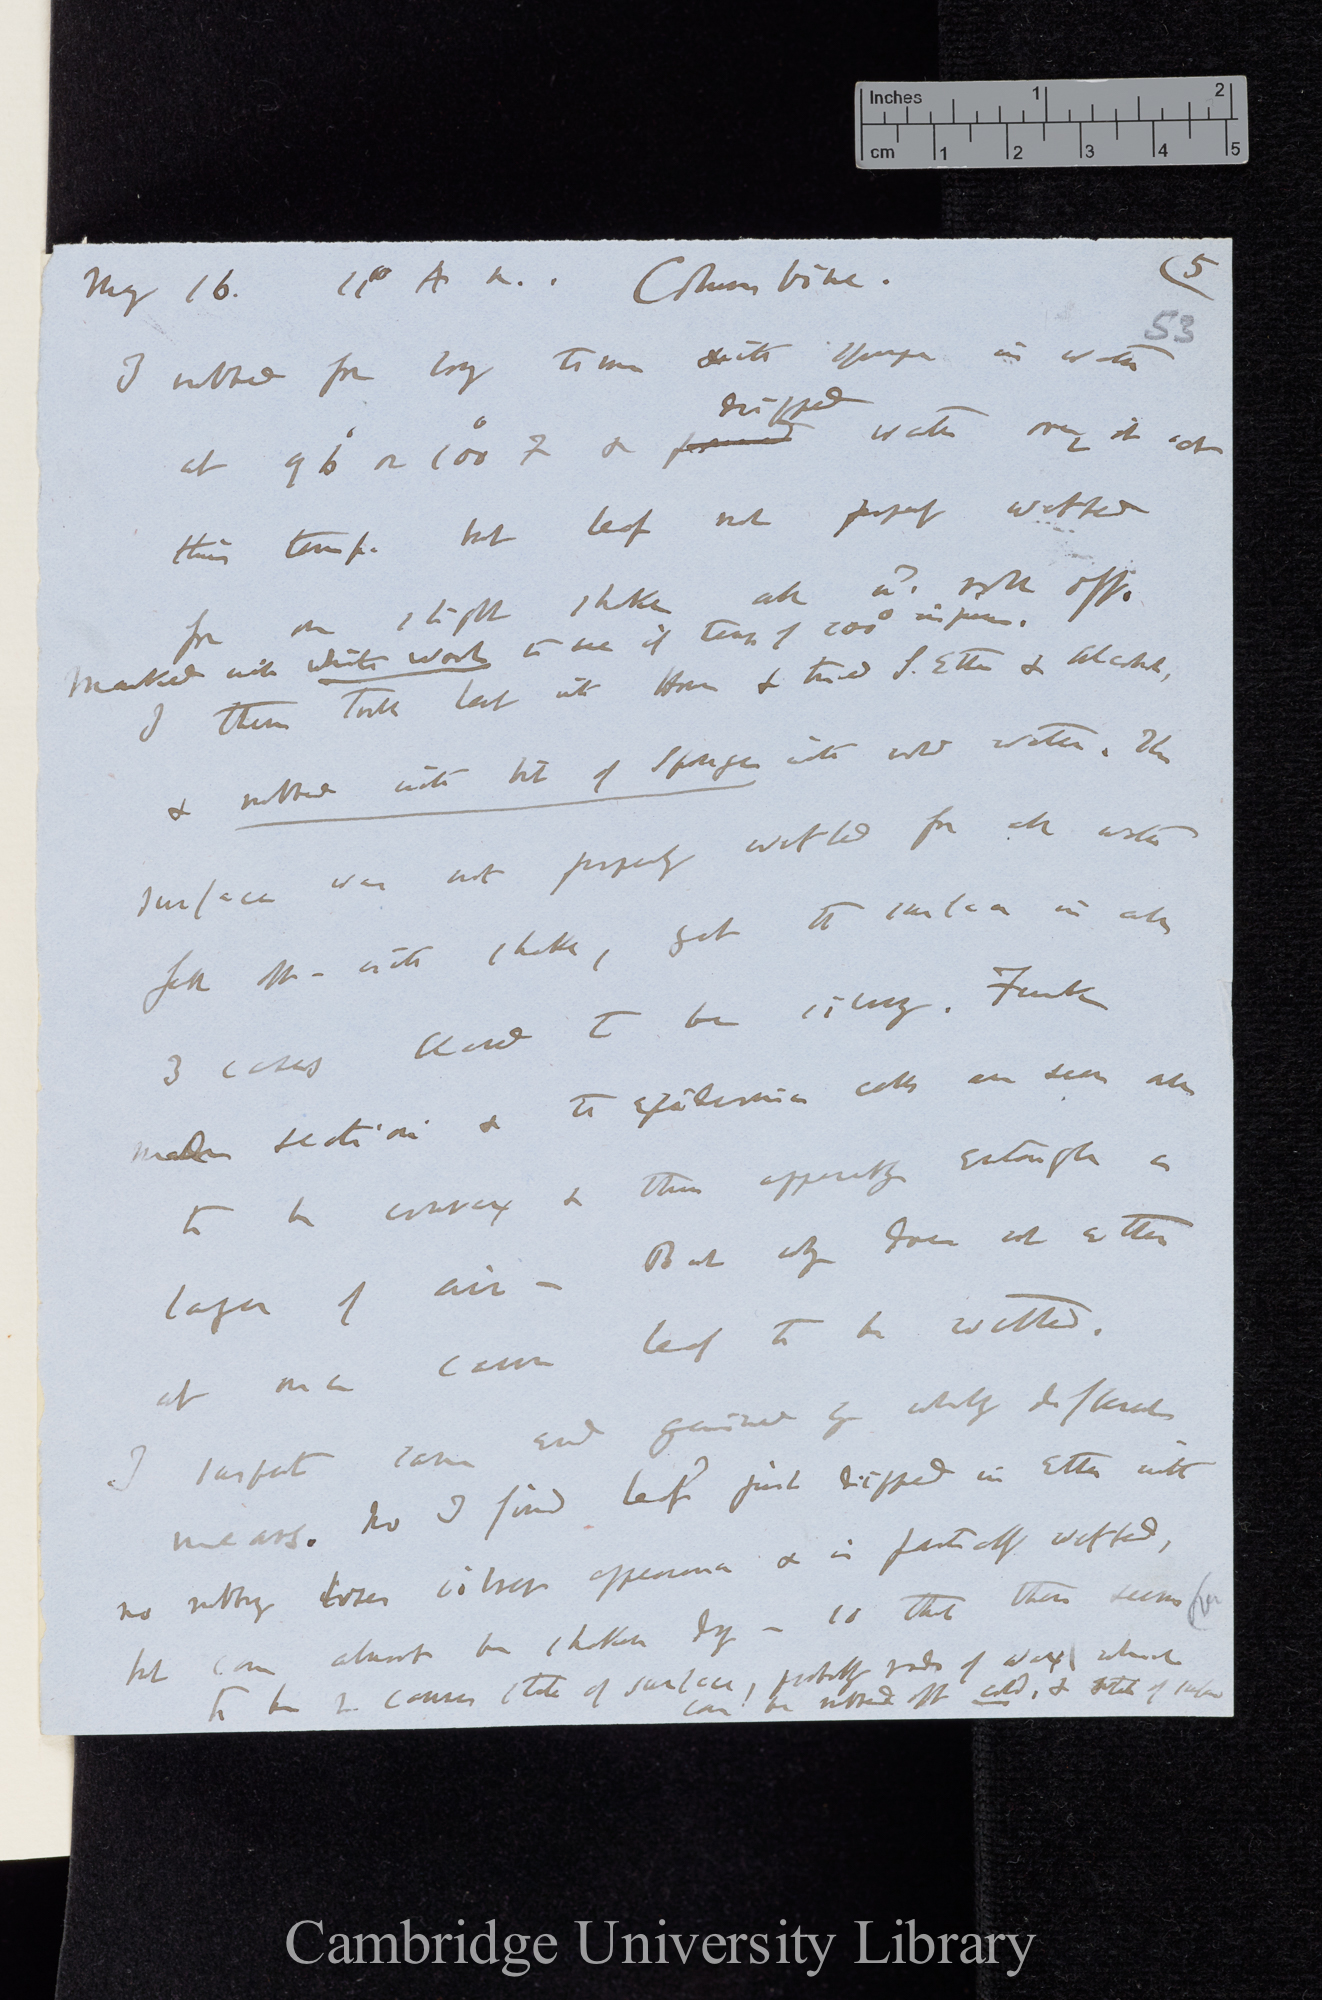 Inches 1 2
cm 1 2 3 4 5
May 16. 11° A m.. Columbine. (5
53
I rubbed for long time with sponge in water
at 96° or 100° F & poured dripped water over it at
this temp. but leaf not properly wetted
for on slight shake all w. rolled off.
Marked with white wool to see if temp of 100° injures.
I then took leaf into House & tried S. Ether & alcohol,
& rubbed with bit of Sponge with cold water. The
surface was not properly wetted for all water
fell off – with shake, yet the surface in all
3 cases ceased to be silvery. Frank
made section & the epidermic cells are seen
to be convex & thus apparently entangle a
layer of air – But why does not ether
at once cause leaf to be wetted.
I suspect same end gained by wholly different
means. No I find leaf just dipped in Ether with
no rubbing loses silvery appearance & is partially wetted,
but can almost be shaken dry – so that there seems for
to be 2 causes state of surface, probably rods of wax which
can be rubbed off cold, & state of surface
Cambridge University Library